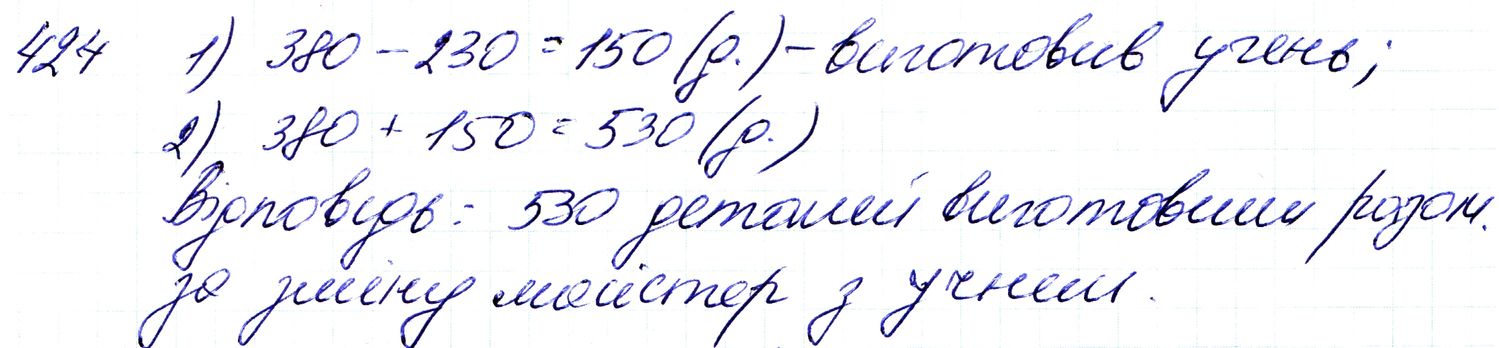 424 1) 380 - 230 = 150 (д.) - виготовив учень;
2) 380 + 150 = 530 (д.)
Відповідь: 530 деталей виготовили разом.
за зміну майстер з учнем.